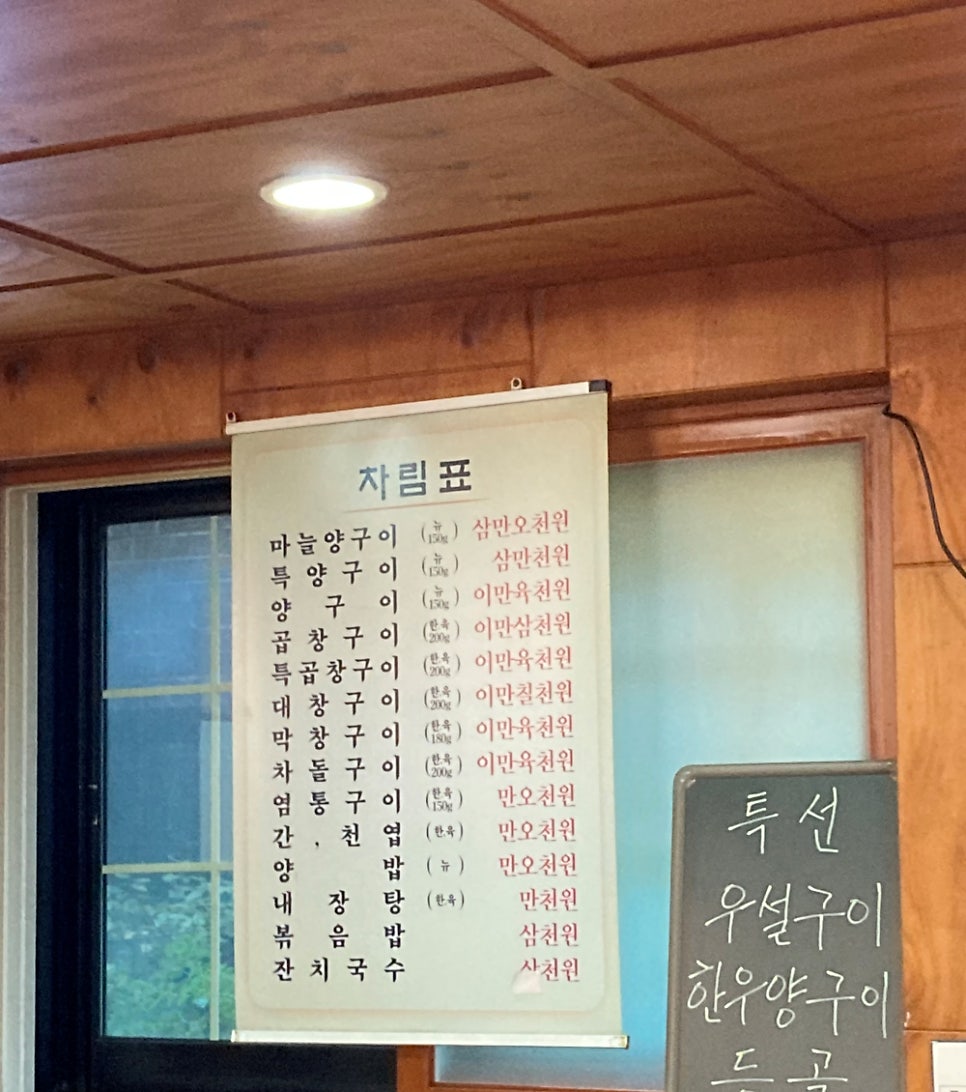 차림표
마늘양구이 (뉴 150g) 삼만오천원
특양구이 (뉴 150g) 삼만천원
양구이 (뉴 150g) 이만육천원
곱창구이 (한육 200g) 이만삼천원
특곱창구이 (한육 200g) 이만육천원
대창구이 (한육 200g) 이만칠천원
막창구이 (한육 180g) 이만육천원
차돌구이 (한육 200g) 이만육천원
염통구이 (한육 150g) 만오천원
간, 천엽 (한육) 만오천원
양밥 (뉴) 만오천원
내장탕 (한육) 만천원
볶음밥 삼천원
잔치국수 삼천원
특선
우설구이
한우양구이
등골